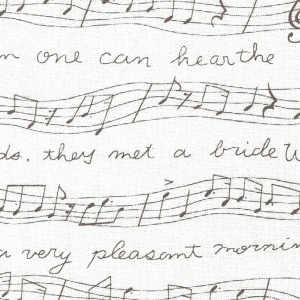 n one can hearthe
ds. they met a bride W
a very pleasant mornin